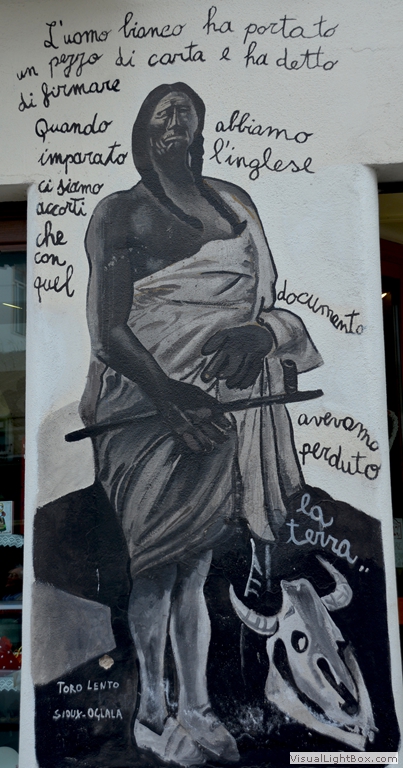 L'uomo bianco ha portato
un pezzo di carta e ha detto
di firmare
Quando abbiamo
imparato l'inglese
ci siamo
accorti
che
con
quel
documento
avevamo
perduto
la
terra..
TORO LENTO
SIOUX-OGLALA
VisualLightBox.com